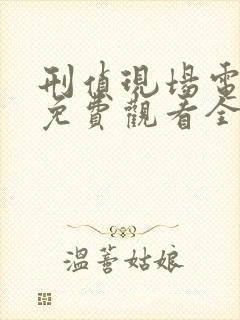 刑偵現場電
免費觀看全
溫薷姑娘